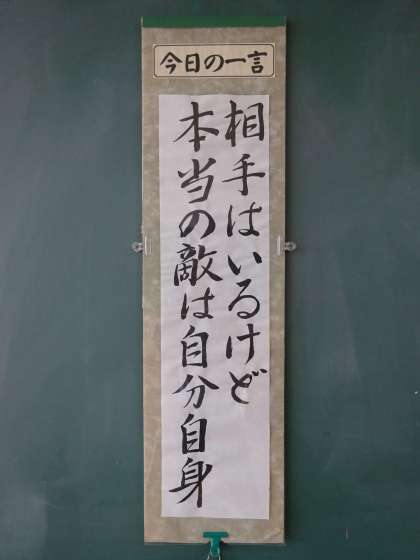 今日の一言
相手はいるけど
本当の敵は自分自身